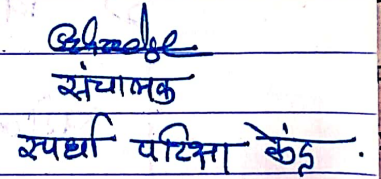 संचालक
स्पर्धा परिक्षा केंद्र.